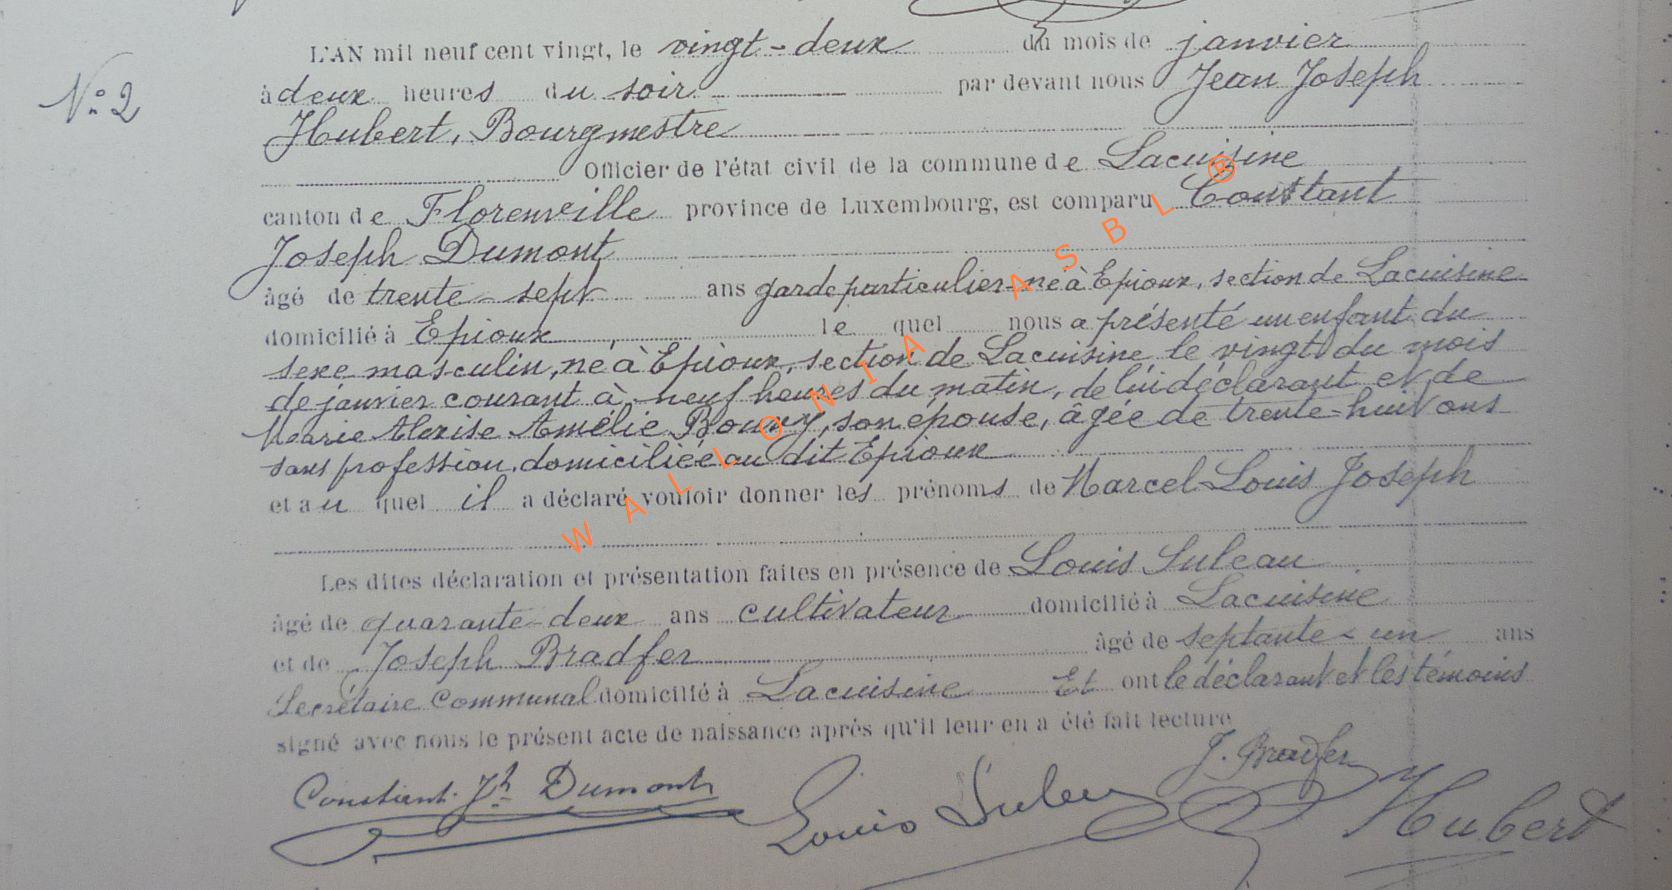 L'AN mil neuf cent vingt, le vingt-deux du mois de janvier
N° 2
à deux heures du soir par devant nous Jean Joseph
Hubert, Bourgmestre
Officier de l'état civil de la commune de Lacuisine
canton de Florenville province de Luxembourg, est comparu Constant
Joseph Dumont
âgé de trente-sept ans garde particulier né à Epioux, section de Lacuisine
domicilié à Epioux le quel nous a présenté un enfant du
sexe masculin, né à Epioux, section de Lacuisine le vingt du mois
de janvier courant à neuf heures du matin, de lui déclarant et de
Marie Alexise Amélie Bouvy, son épouse, âgée de trente-huit ans
sans profession, domiciliée au dit Epioux
et au quel il a déclaré vouloir donner les prénoms de Marcel Louis Joseph
Les dites déclaration et présentation faites en présence de Louis Suleau
âgé de quarante-deux ans cultivateur domicilié à Lacuisine
et de Joseph Bradfer âgé de septante-un ans
Secrétaire communal domicilié à Lacuisine Et ont le déclarant et les témoins
signé avec nous le présent acte de naissance après qu'il leur en a été fait lecture
J. Bradfer
Constant Jh Dumont Louis Suleau Hubert
WALLONIA ASBL ®